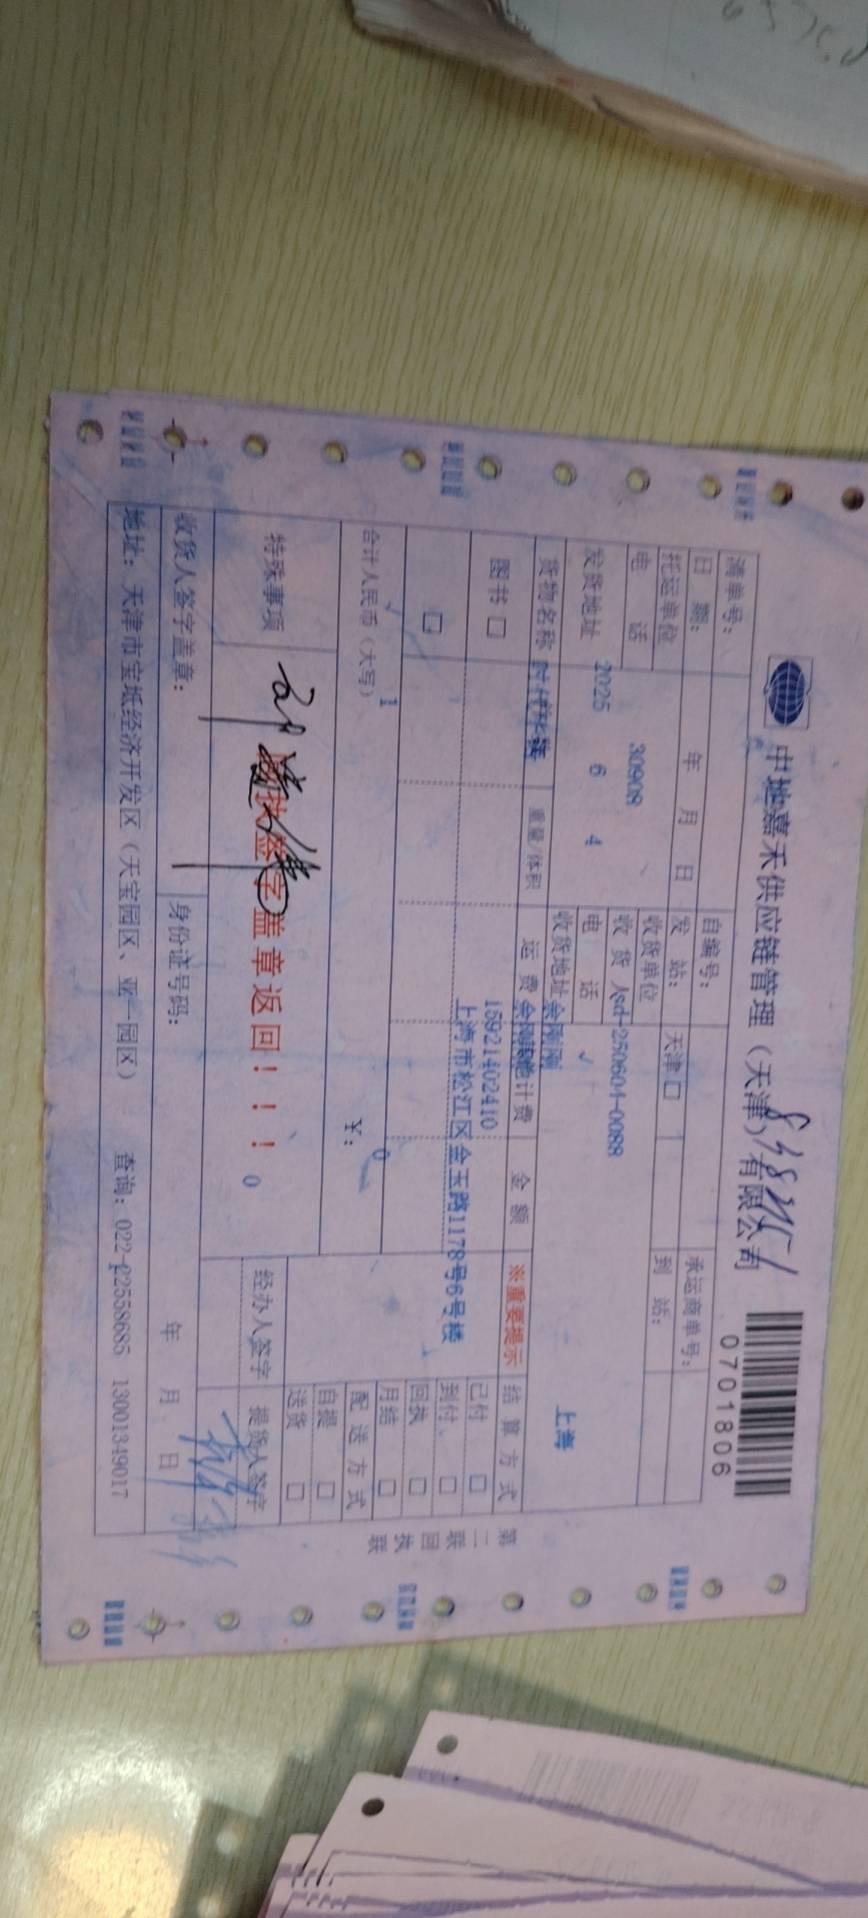 中地嘉禾供应链管理（天津）有限公司
0701806
清单号：
自编号：
承运商单号：
日 期： 年 月 日
发 站： 天津 □
到 站：
托运单位
收货单位
电 话 30908
收 货 人 sd-250604-0088
发货地址 2025 6 4
电 话 √
收货地址 余刚刚
上海
货物名称
重量/体积
运 费
计费
金 额
※重要提示
结 算 方 式
图书 □
15921402410
已付 □
上海市松江区金玉路1178号6号楼
到付 □
□
回执 □
月结 □
合计人民币（大写） 1
¥： 0
配 送 方 式
自提 □
送货 □
特殊事项
回执签字盖章返回！！！
0
经办人签字
提货人签字
收货人签字盖章：
身份证号码：
年 月 日
地址：天津市宝坻经济开发区（天宝园区、亚一园区） 查询：022-22558685 13001349017
第二联 回执联